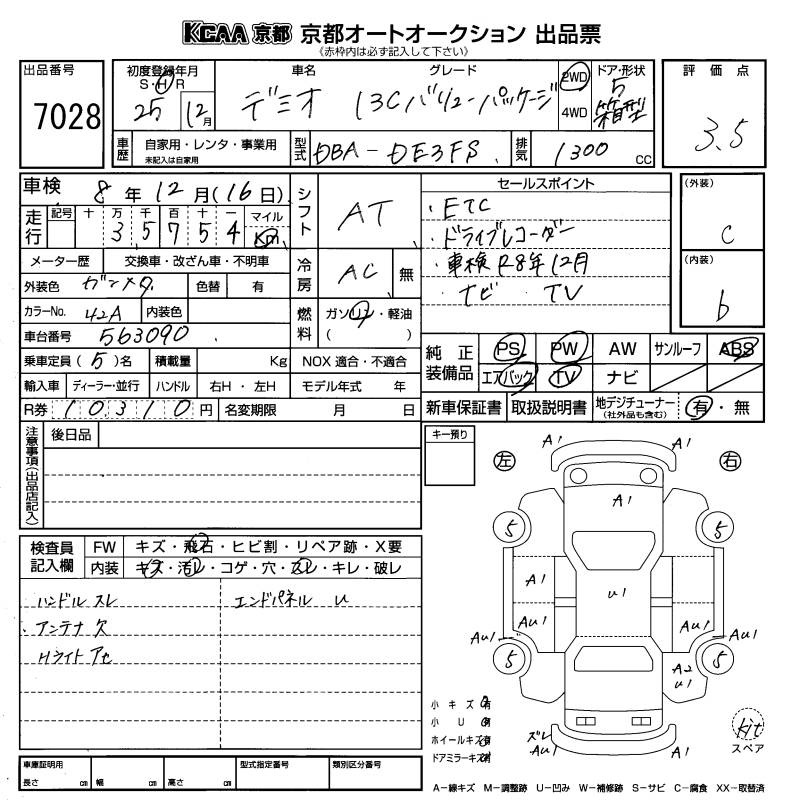 KCAA 京都 京都オートオークション 出品票
《赤枠内は必ず記入して下さい》
出品番号
7028
初度登録年月
S・H・R
25 12月
車名
デミオ
グレード
13Cバリューパッケージ
2WD
4WD
ドア・形状
5
箱型
評価点
3.5
車歴
自家用・レンタ・事業用
未記入は自家用
型式
DBA-DE3FS
排気
1300 CC
車検 8年12月(16日)
走行
記号 十 万 千 百 十 一 マイル
3 5 7 5 4 Km
メーター歴 交換車・改ざん車・不明車
外装色 ガンメタ 色替 有
カラーNo. 42A 内装色
車台番号 563090
乗車定員(5)名 積載量 Kg
輸入車 ディーラー・並行 ハンドル 右H・左H
R券 10310円 名変期限 月 日
シフト AT
冷房 AC 無
燃料 ガソリン・軽油
( )
NOX 適合・不適合
モデル年式 年
セールスポイント
・ETC
・ドライブレコーダー
・車検R8年12月
・ナビ TV
(外装)
C
(内装)
b
純正装備品
PS PW AW サンルーフ ABS
エアバック TV ナビ
新車保証書 取扱説明書 地デジチューナー
(社外品も含む)
有・無
注意事項(出品店記入)
後日品
キー預り
検査員記入欄
FW キズ・飛石・ヒビ割・リペア跡・X要
内装 キズ・汚レ・コゲ・穴・スレ・キレ・破レ
ハンドル スレ
エンドパネル U
・アンテナ欠
Hライト アセ
左
右
A1
A1
A1
5
5
A1
A1
U1
AU1
AU1
AU1
AU1
5
5
A2
U1
ズレ
AU1
A1
小キズ 有
小U 有
ホイールキズ 有
ドアミラーキズ 有
kit
スペア
車庫証明用
長さ cm 幅 cm 高さ cm
型式指定番号
類別区分番号
A−線キズ M−調整跡 U−凹み W−補修跡 S−サビ C−腐食 XX−取替済